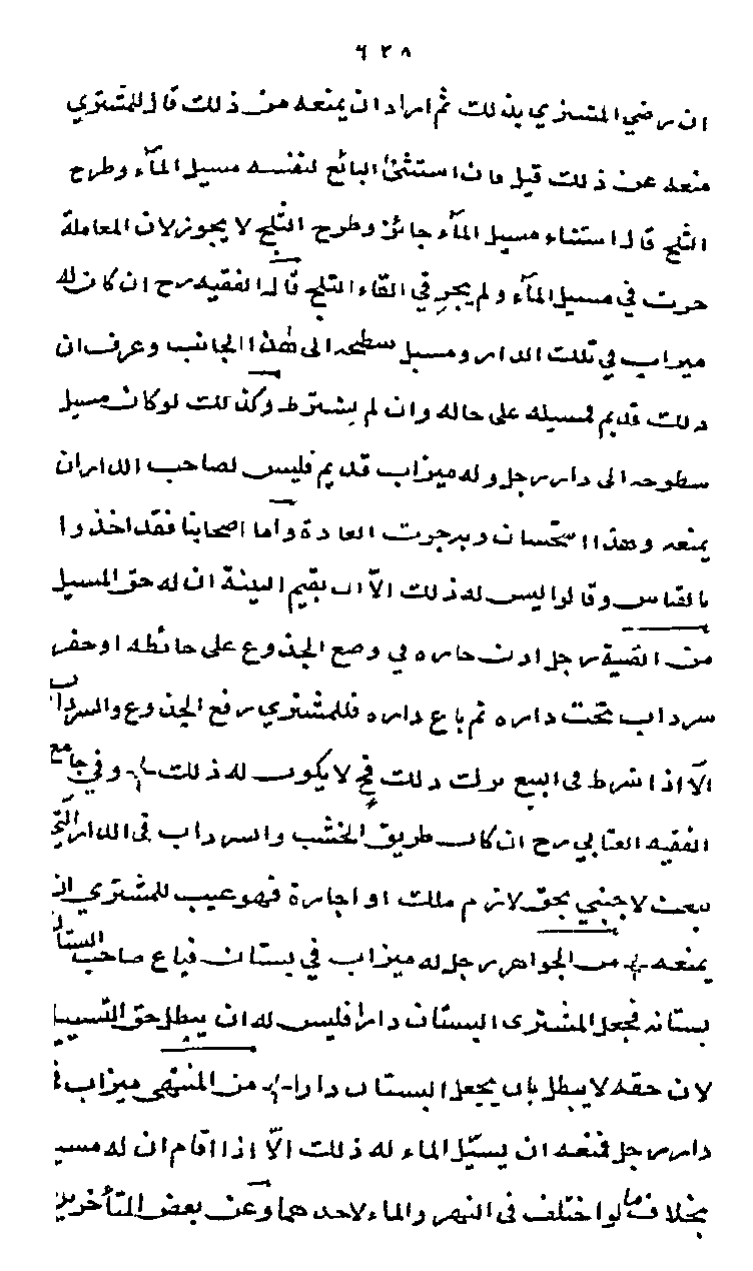 ٦٢٨
ان رضي المشتري بذلك ثم اراد ان يمنعه من ذلك قال للمشتري
منعه عن ذلك قيل فان استثنى البائع لنفسه مسيل المآء وطرح
الثلج قال استثناء مسيل المآء جائز وطرح الثلج لا يجوز لان المعاملة
جرت في مسيل المآء ولم يجر في القاء الثلج قال الفقيه رح ان كان له
ميزاب في تلك الدار ومسيل سطحه الى هذا الجانب وعرف ان
ذلك قديم فمسيله على حاله وان لم يشترط وكذلك لو كان مسيل
سطوحه الى دار رجل وله ميزاب قديم فليس لصاحب الدار ان
يمنعه وهذا استحسان وبه جرت العادة وأما اصحابنا فقد اخذوا
بالقياس وقالوا ليس له ذلك الا ان يقيم البينة ان له حق المسيل
من القنية رجل اذن جاره في وضع الجذوع على حائطه او حفر
سرداب تحت داره ثم باع داره فللمشتري رفع الجذوع والسرداب
الا اذا شرط في البيع ترك ذلك فح لا يكون له ذلك وفي جامع
الفقيه العتابي رح ان كان طريق الخشب والسرداب في الدار التي
بيعت لاجنبي بحق لازم ملك او اجارة فهو عيب للمشتري ان
يمنعه من الجواهر رجل له ميزاب في بستان فباع صاحب البستان
بستانه فجعل المشتري البستان دارا فليس له ان يبطل حق التسييل
لان حقه لا يبطل بان يجعل البستان دارا من المنتهى ميزاب في
دار رجل فمنعه ان يسيّل الماء له ذلك الا اذا اقام ان له مسيل
بخلاف ما لو اختلف في النهر والماء لاحدهما وعن بعض المتأخرين